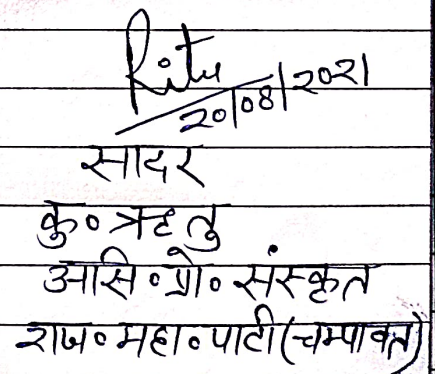 Ritu
20/08/2021
सादर
कु० ऋतु
असि० प्रो० संस्कृत
राज० महा० पाटी (चम्पावत)